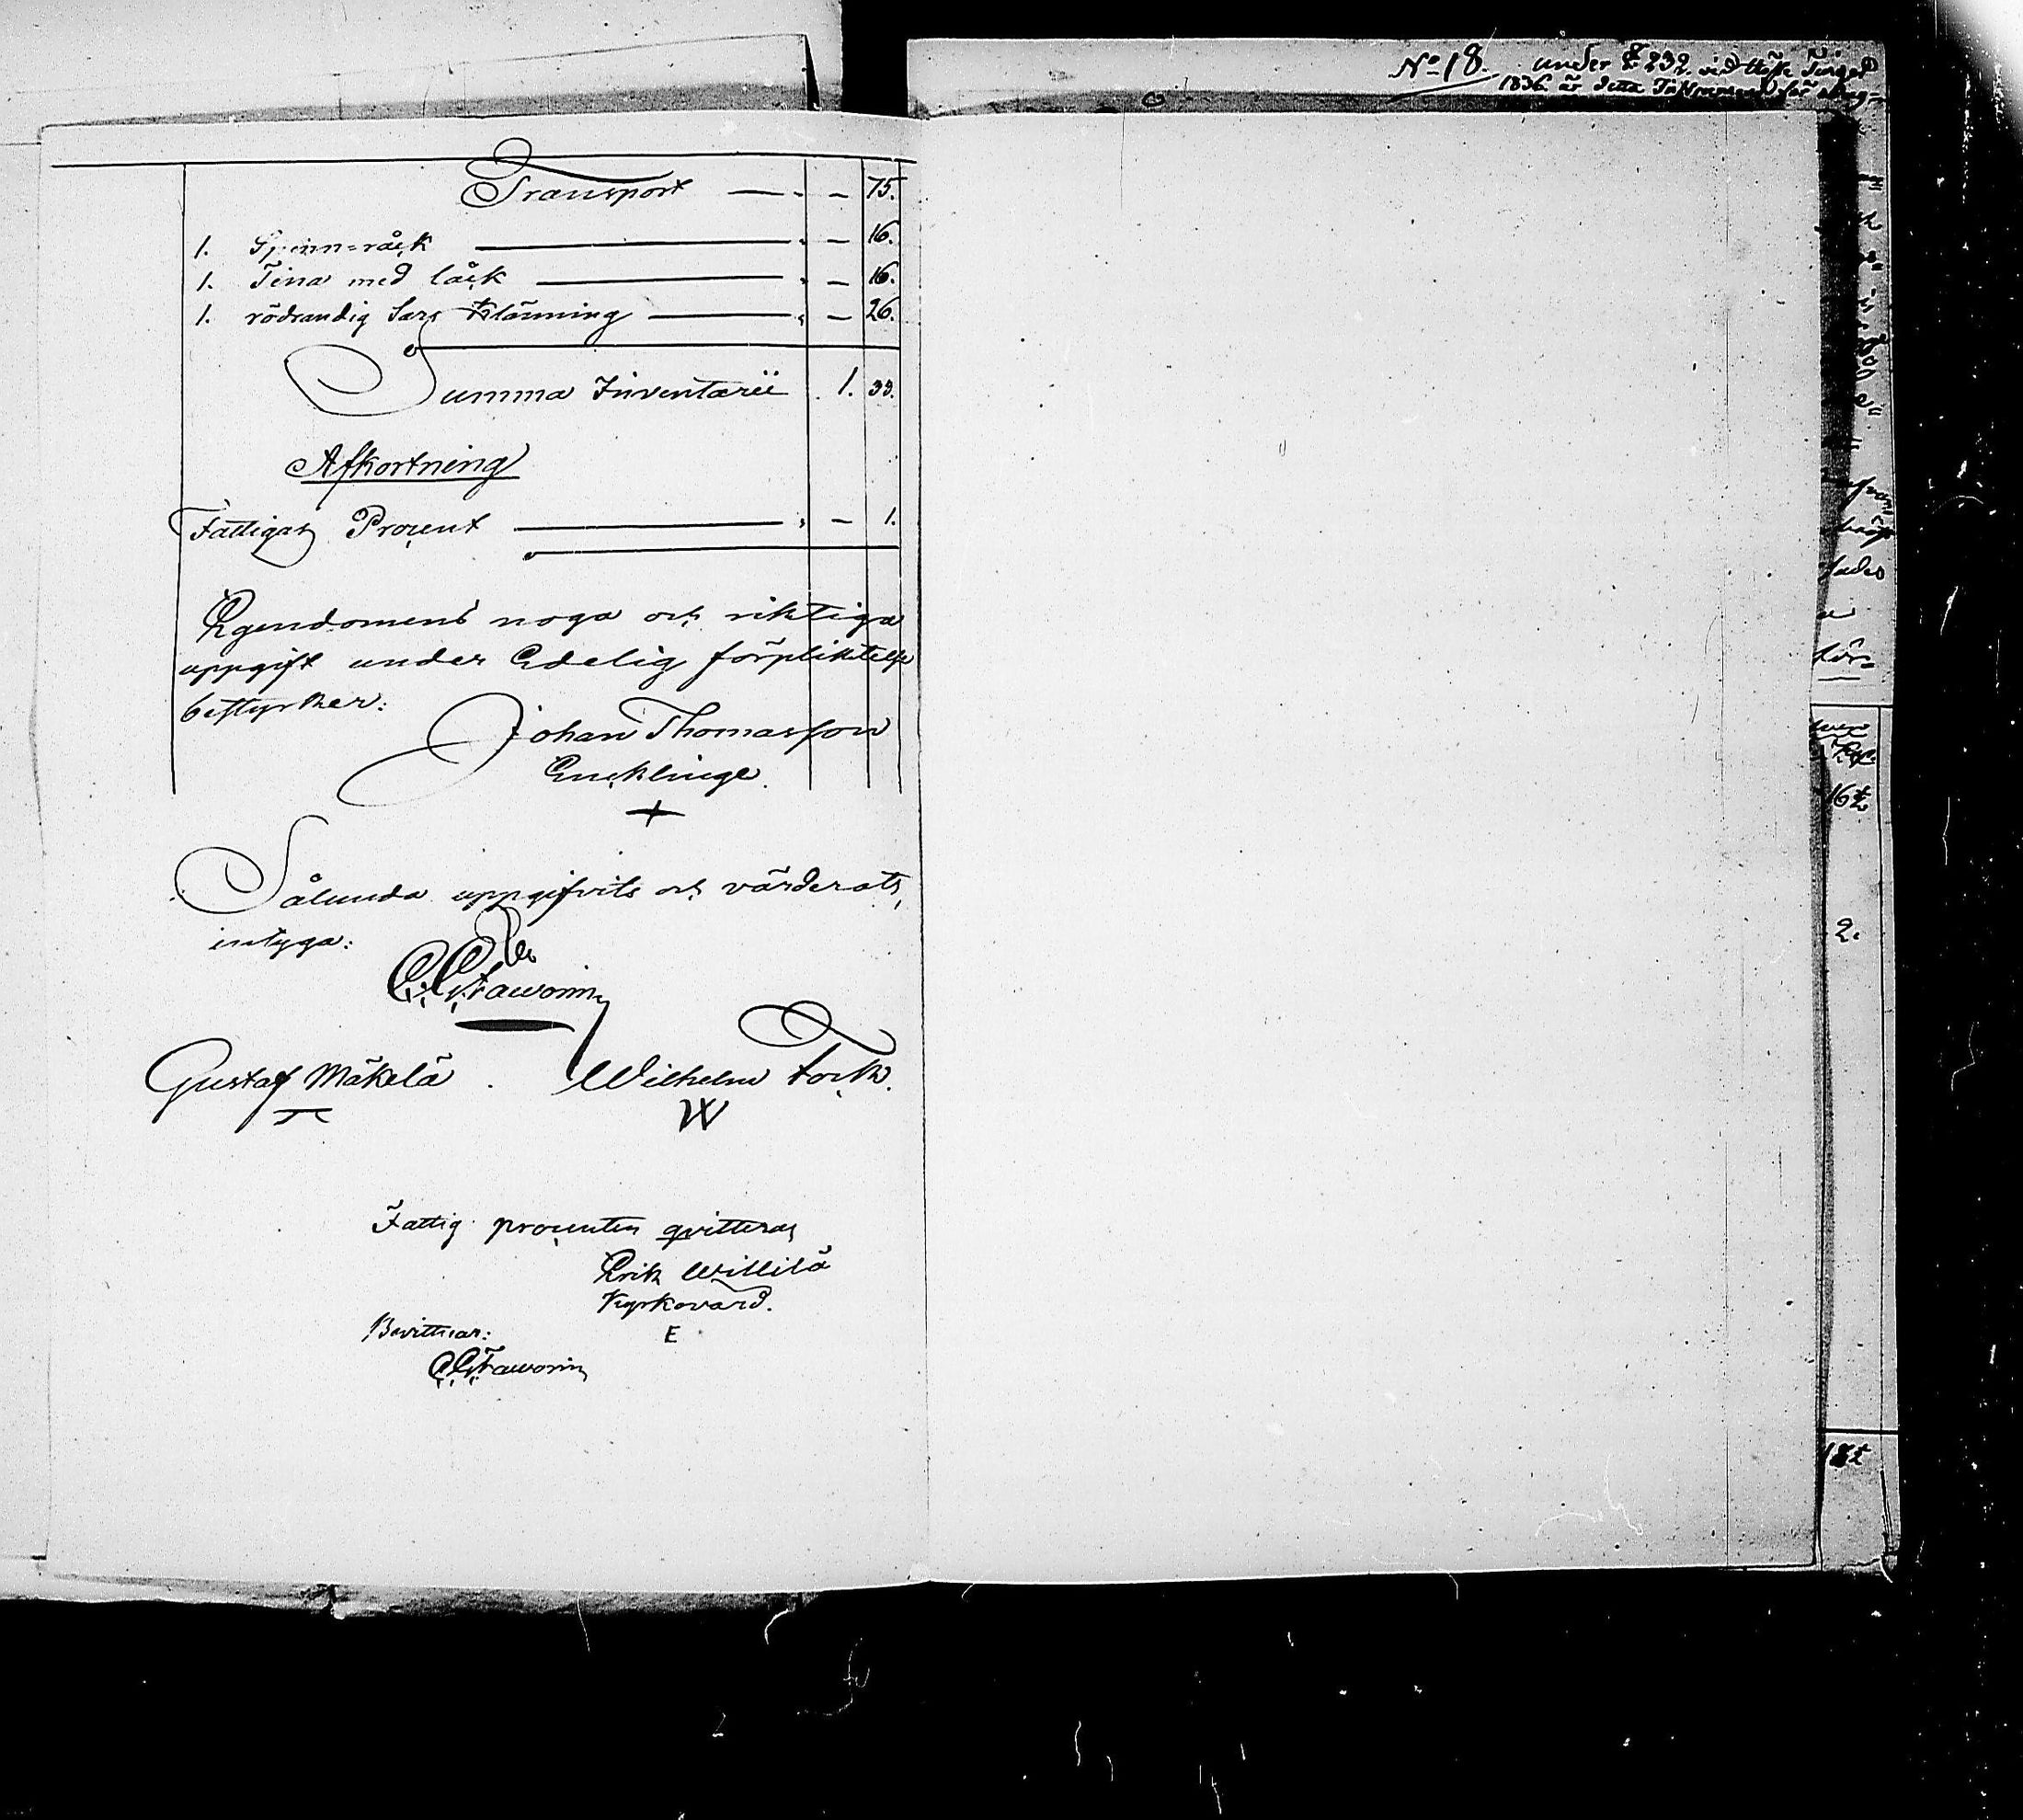 Transport — „ — 75.
1. Spinn=råck — „ — 16.
1. Tina med låck — „ — 16.
1. rödrandig Sars Klänning — „ — 26.
Summa Inventarii 1. 33.
Afkortning
Fattigas Procent — „ — 1.
Egendomens noga och riktiga
uppgift under Edelig förpliktelse
bestyrker:
Johan Thomasson
Encklinge.
+
Sålunda uppgifvits och värderats,
intyga:
C. G. Faworin
Gustaf Mäkelä. Wilhelm Tork.
W
Fattig procenten qvitteras
Erik Willilä
Kyrkovärd.
E
Bevittnar:
C. G. Faworin
No 18. under § 232. vid
1836 är detta
16
2.